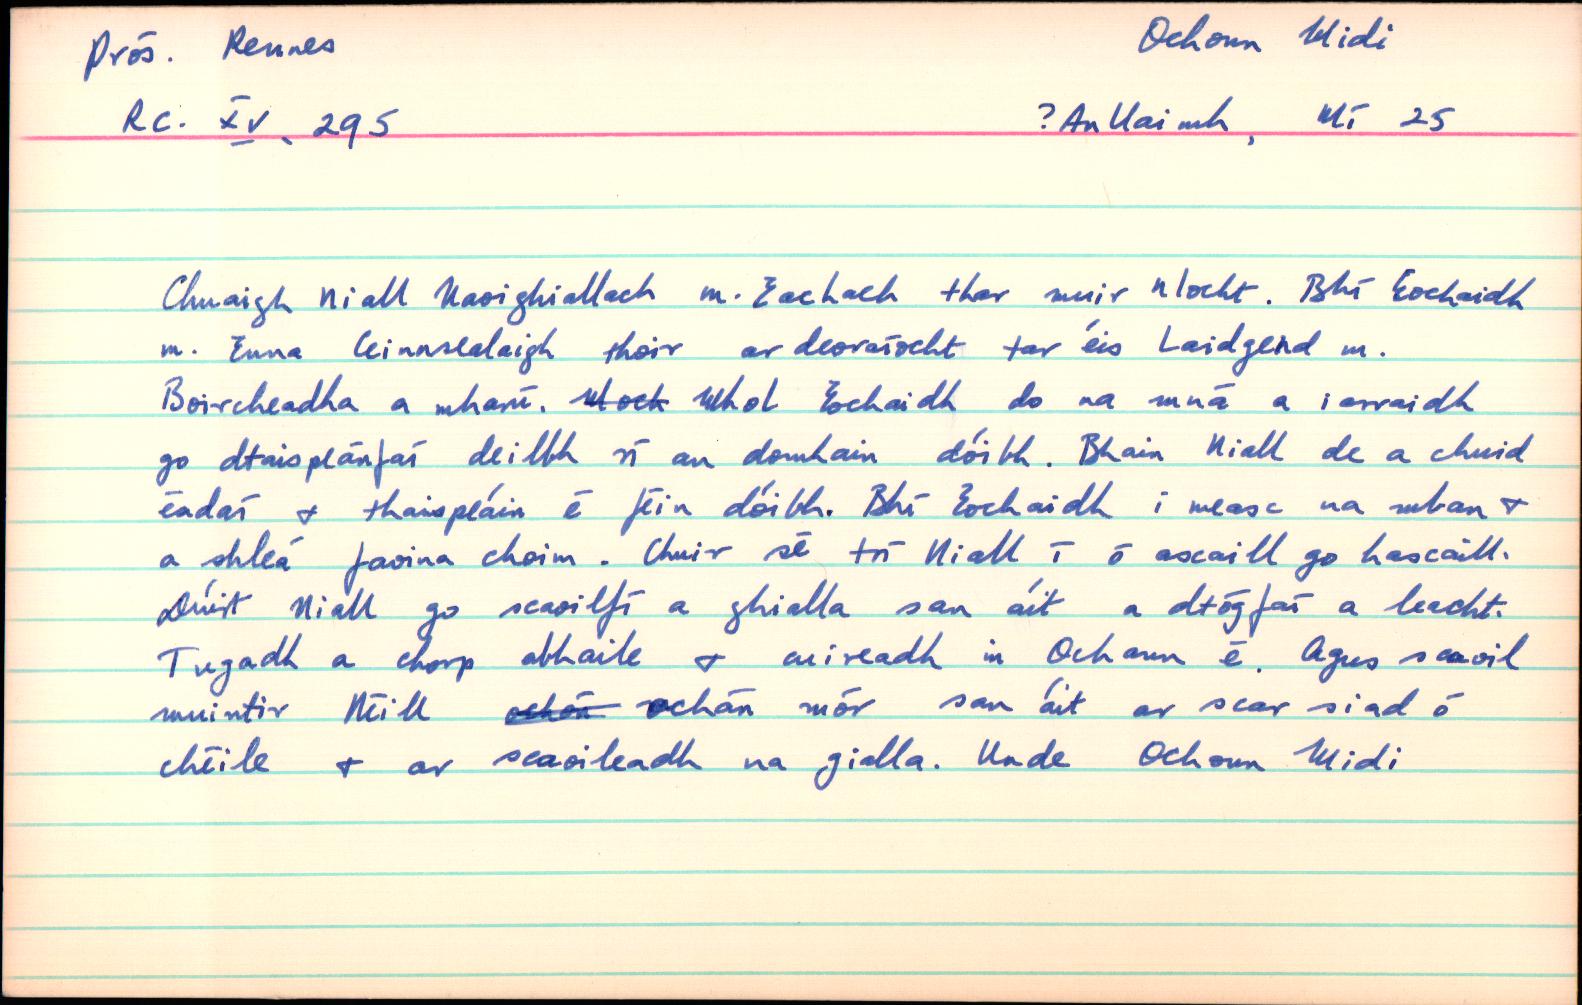 Prós. Rennes
Ochonn Midi
RC. XV, 295
? An Uaimh, Mí 25
Chuaigh Niall Naoighiallach m. Eachach thar muir nIocht. Bhí Eochaidh
m. Enna Ceinnsealaigh thoir ar deoraíocht tar éis Laidgend m.
Boircheadha a mharú. Mhol Eochaidh do na mná a iarraidh
go dtaispeánfaí deilbh rí an domhain dóibh. Bhain Niall de a chuid
éadaí & thaispeáin é féin dóibh. Bhí Eochaidh i measc na mban &
a shleá faoina choim. Chuir sé trí Niall í ó ascaill go hascaill.
Dúirt Niall go scaoilfí a ghialla san áit a dtógfaí a leacht.
Tugadh a chorp abhaile & cuireadh in Ochann é. Agus scaoil
muintir Néill ochón ochán mór san áit ar scar siad ó
chéile & ar scaoileadh na gialla. Unde Ochonn Midi